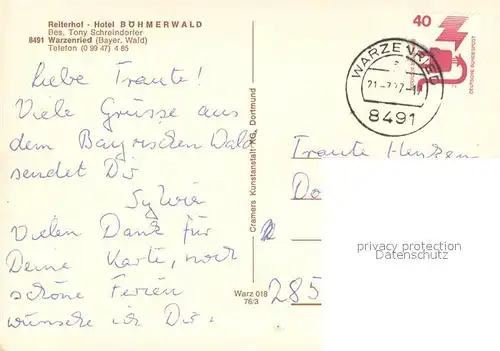 Reiterhof - Hotel BÖHMERWALD
Bes. Tony Schreindorfer
8491 Warzenried (Bayer. Wald)
Telefon (0 99 47) 4 85
Liebe Traute!
Viele Grüsse aus
dem Bayrischen Wald
sendet Dir
Sylvia
Vielen Dank für
Deine Karte, noch
schöne Ferien
wünsche ich Dir.
Cramers Kunstanstalt KG, Dortmund
Warz 018
76/3
40
DEUTSCHE BUNDESPOST
WARZENRIED
8491
Traute
Do
285
privacy protection
Datenschutz